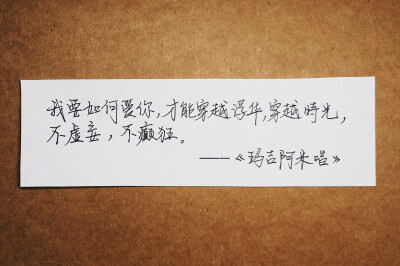 我要如何爱你,才能穿越浮华,穿越時光,
不虚妄,不癫狂。
——《玛吉阿米唱》